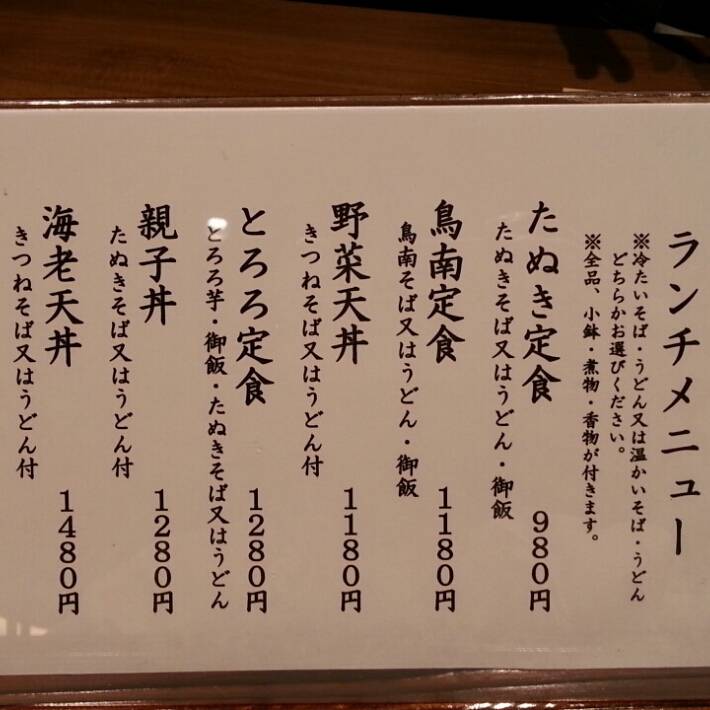 ランチメニュー
※冷たいそば・うどん又は温かいそば・うどん
どちらかお選びください。
※全品、小鉢・煮物・香物が付きます。
たぬき定食 980円
たぬきそば又はうどん・御飯
鳥南定食 1180円
鳥南そば又はうどん・御飯
野菜天丼 1180円
きつねそば又はうどん付
とろろ定食 1280円
とろろ芋・御飯・たぬきそば又はうどん
親子丼 1280円
たぬきそば又はうどん付
海老天丼 1480円
きつねそば又はうどん付